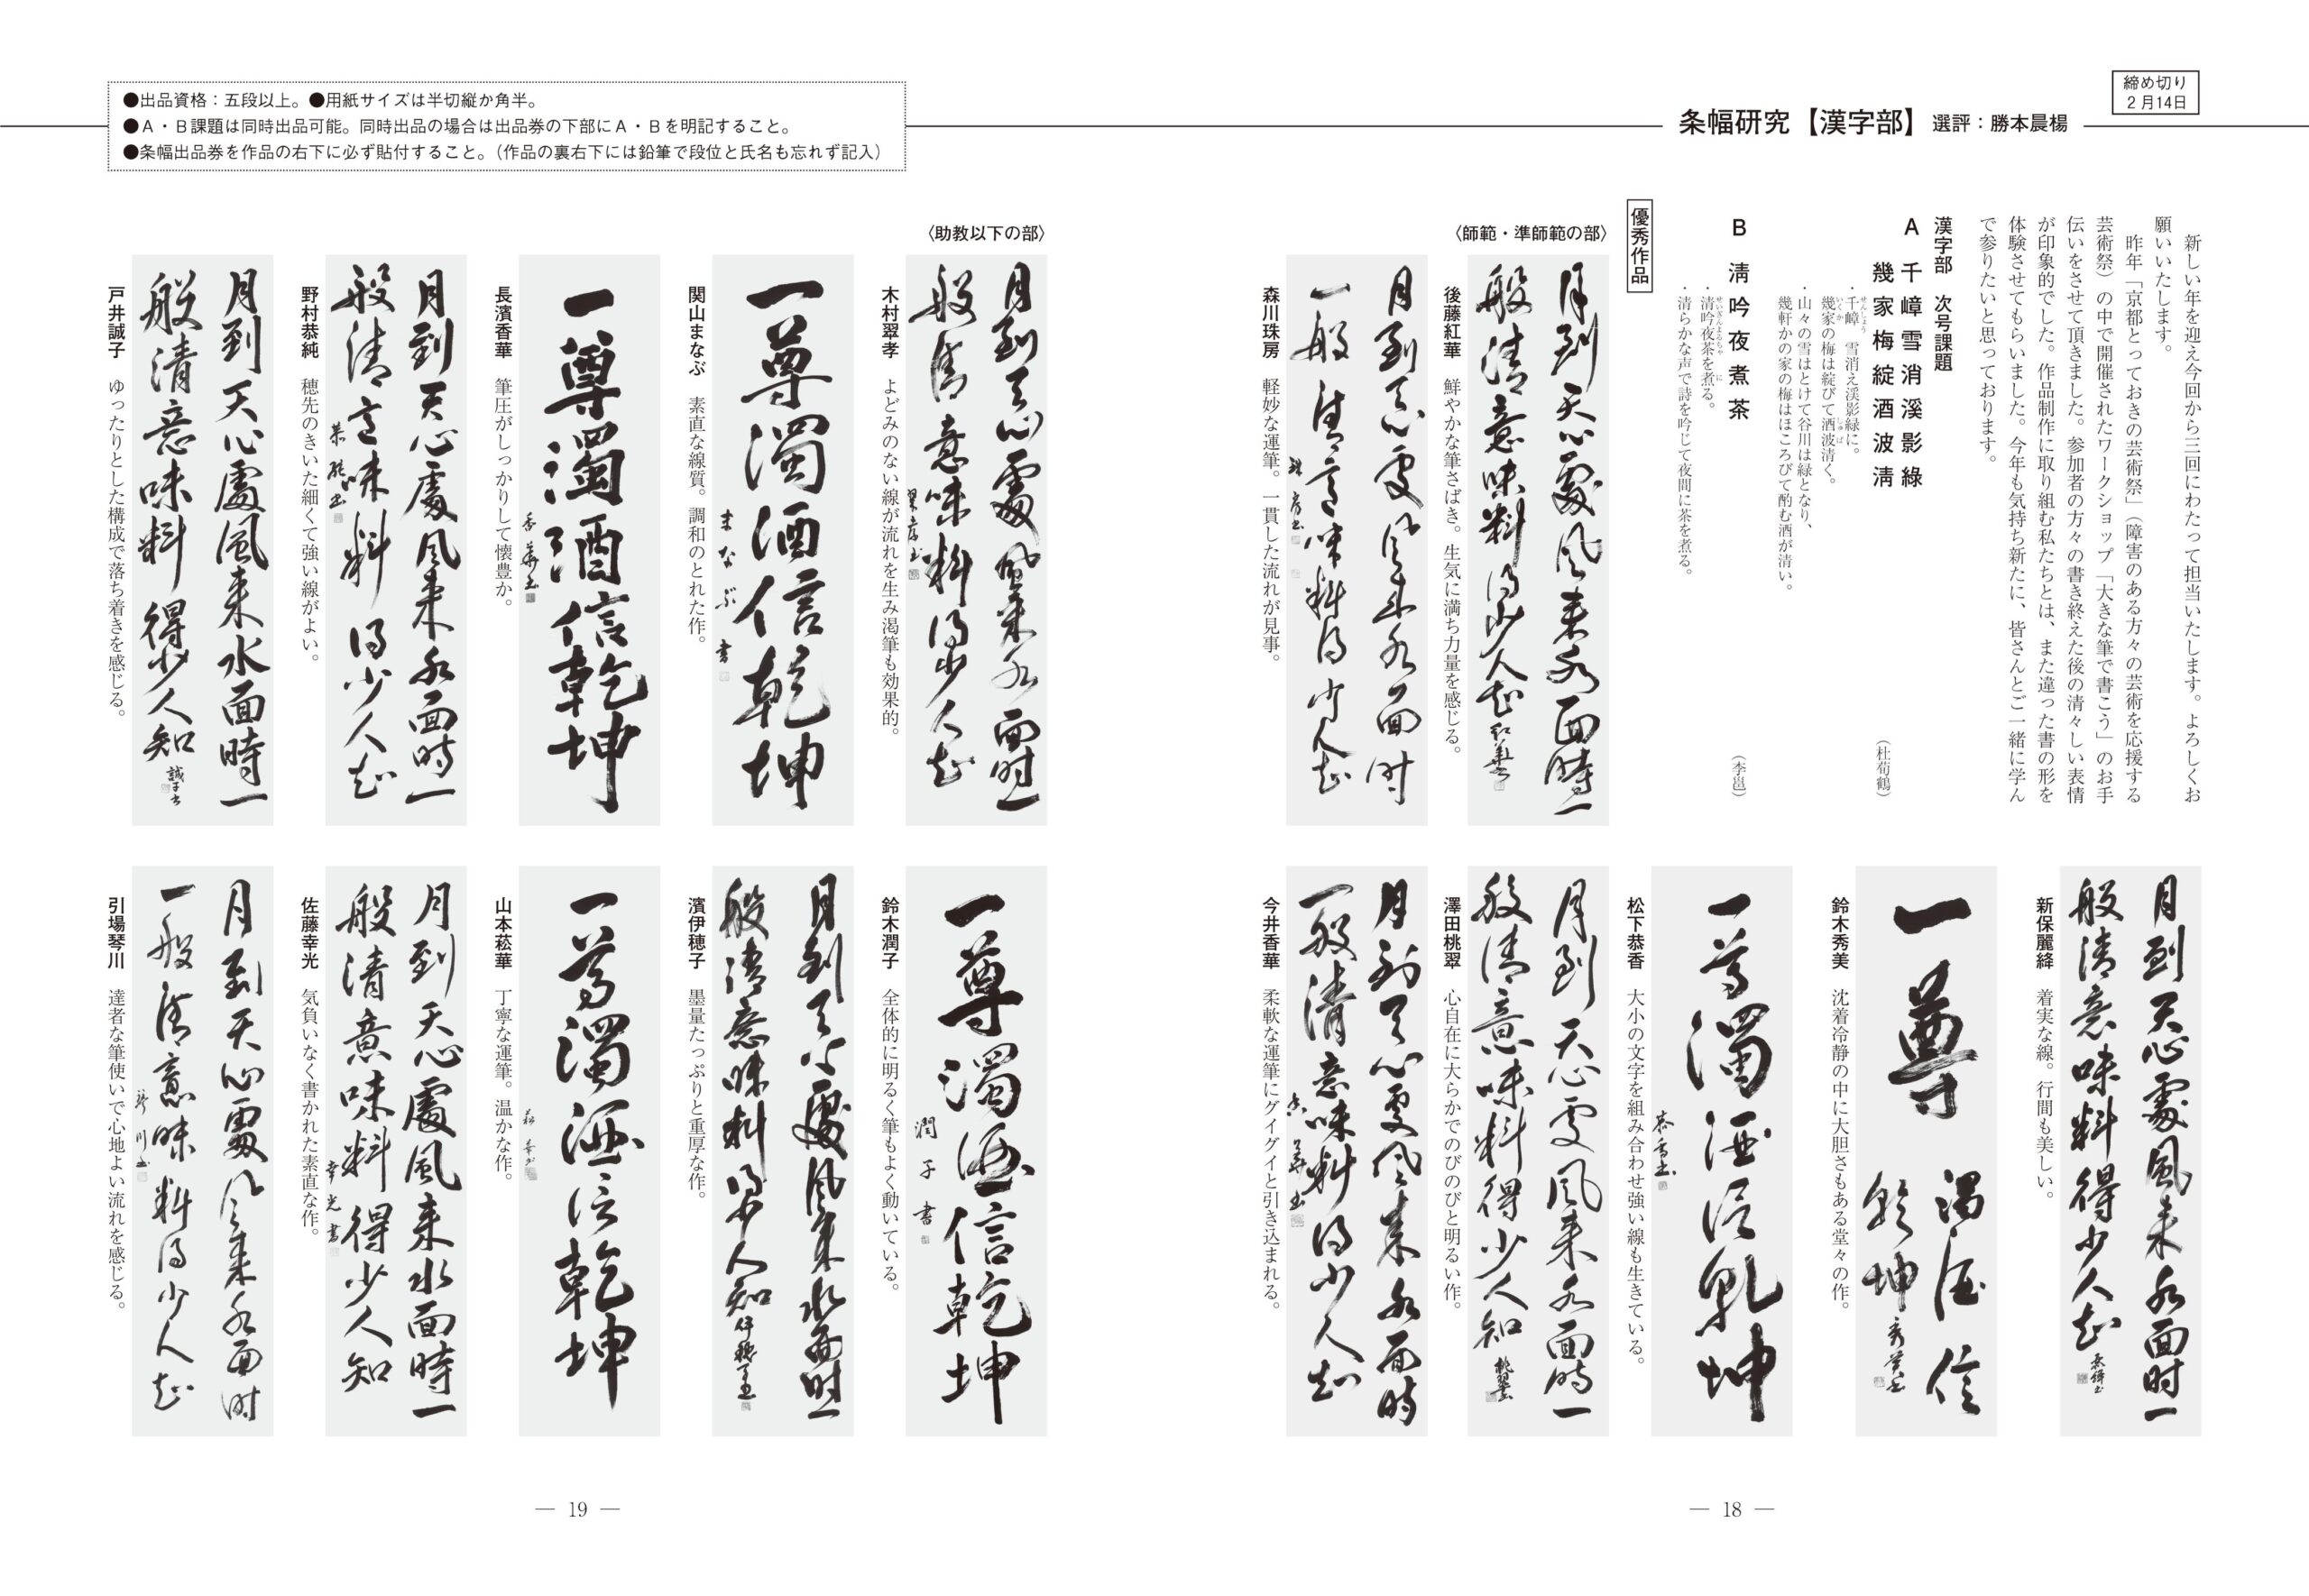 締め切り
2月14日
条幅研究【漢字部】選評：勝本晨楊
新しい年を迎え今回から三回にわたって担当いたします。よろしくお
願いいたします。
昨年「京都とっておきの芸術祭」（障害のある方々の芸術を応援する
芸術祭）の中で開催されたワークショップ「大きな筆で書こう」のお手
伝いをさせて頂きました。参加者の方々の書き終えた後の清々しい表情
が印象的でした。作品制作に取り組む私たちとは、また違った書の形を
体験させてもらいました。今年も気持ち新たに、皆さんとご一緒に学ん
で参りたいと思っております。
漢字部　次号課題
A　千嶂雪消溪影綠
幾家梅綻酒波淸
（杜荀鶴）
・千嶂　雪消え渓影緑に。
幾家の梅は綻びて酒波清く。
・山々の雪はとけて谷川は緑となり、
幾軒かの家の梅はほころびて酌む酒が清い。
B　淸吟夜煮茶
（李邕）
・清吟夜茶を煮る。
・清らかな声で詩を吟じて夜間に茶を煮る。
優秀作品
〈師範・準師範の部〉
月到天心處風来水面時一
般清意味料得少人知　紅華書
後藤紅華　鮮やかな筆さばき。生気に満ち力量を感じる。
月到天心處風来水面时
一般清意味料得少人知
珠房書
森川珠房　軽妙な運筆。一貫した流れが見事。
月到天心處風来水面时一
般清意味料得少人知
新保麗絳　着実な線。行間も美しい。
一尊濁酒信
乾坤　秀美書
鈴木秀美　沈着冷静の中に大胆さもある堂々の作。
一尊濁酒信乾坤
恭香書
松下恭香　大小の文字を組み合わせ強い線も生きている。
月到天心處風来水面時一
般清意味料得少人知　桃翠書
澤田桃翠　心自在に大らかでのびのびと明るい作。
月到天心處風来水面時
一般清意味料得少人知
香華書
今井香華　柔軟な運筆にグイグイと引き込まれる。
— 18 —
●出品資格：五段以上。●用紙サイズは半切縦か角半。
●A・B課題は同時出品可能。同時出品の場合は出品券の下部にA・Bを明記すること。
●条幅出品券を作品の右下に必ず貼付すること。（作品の裏右下には鉛筆で段位と氏名も忘れず記入）
〈助教以下の部〉
月到天心處風来水面时一
般清意味料得少人知
翠孝書
木村翠孝　よどみのない線が流れを生み渇筆も効果的。
一尊濁酒信乾坤
まなぶ書
関山まなぶ　素直な線質。調和のとれた作。
一尊濁酒信乾坤
香華書
長濱香華　筆圧がしっかりして懐豊か。
月到天心處風来水面時一
般清意味料得少人知
恭純書
野村恭純　穂先のきいた細くて強い線がよい。
月到天心處風来水面時一
般清意味料得少人知　誠子書
戸井誠子　ゆったりとした構成で落ち着きを感じる。
一尊濁酒信乾坤
潤子書
鈴木潤子　全体的に明るく筆もよく動いている。
月到天心處風来水面时一
般清意味料得少人知　伊穂子書
濱伊穂子　墨量たっぷりと重厚な作。
一尊濁酒信乾坤
菘華書
山本菘華　丁寧な運筆。温かな作。
月到天心處風来水面時一
般清意味料得少人知
幸光書
佐藤幸光　気負いなく書かれた素直な作。
月到天心處風来水面时
一般清意味料得少人知
琴川書
引場琴川　達者な筆使いで心地よい流れを感じる。
— 19 —